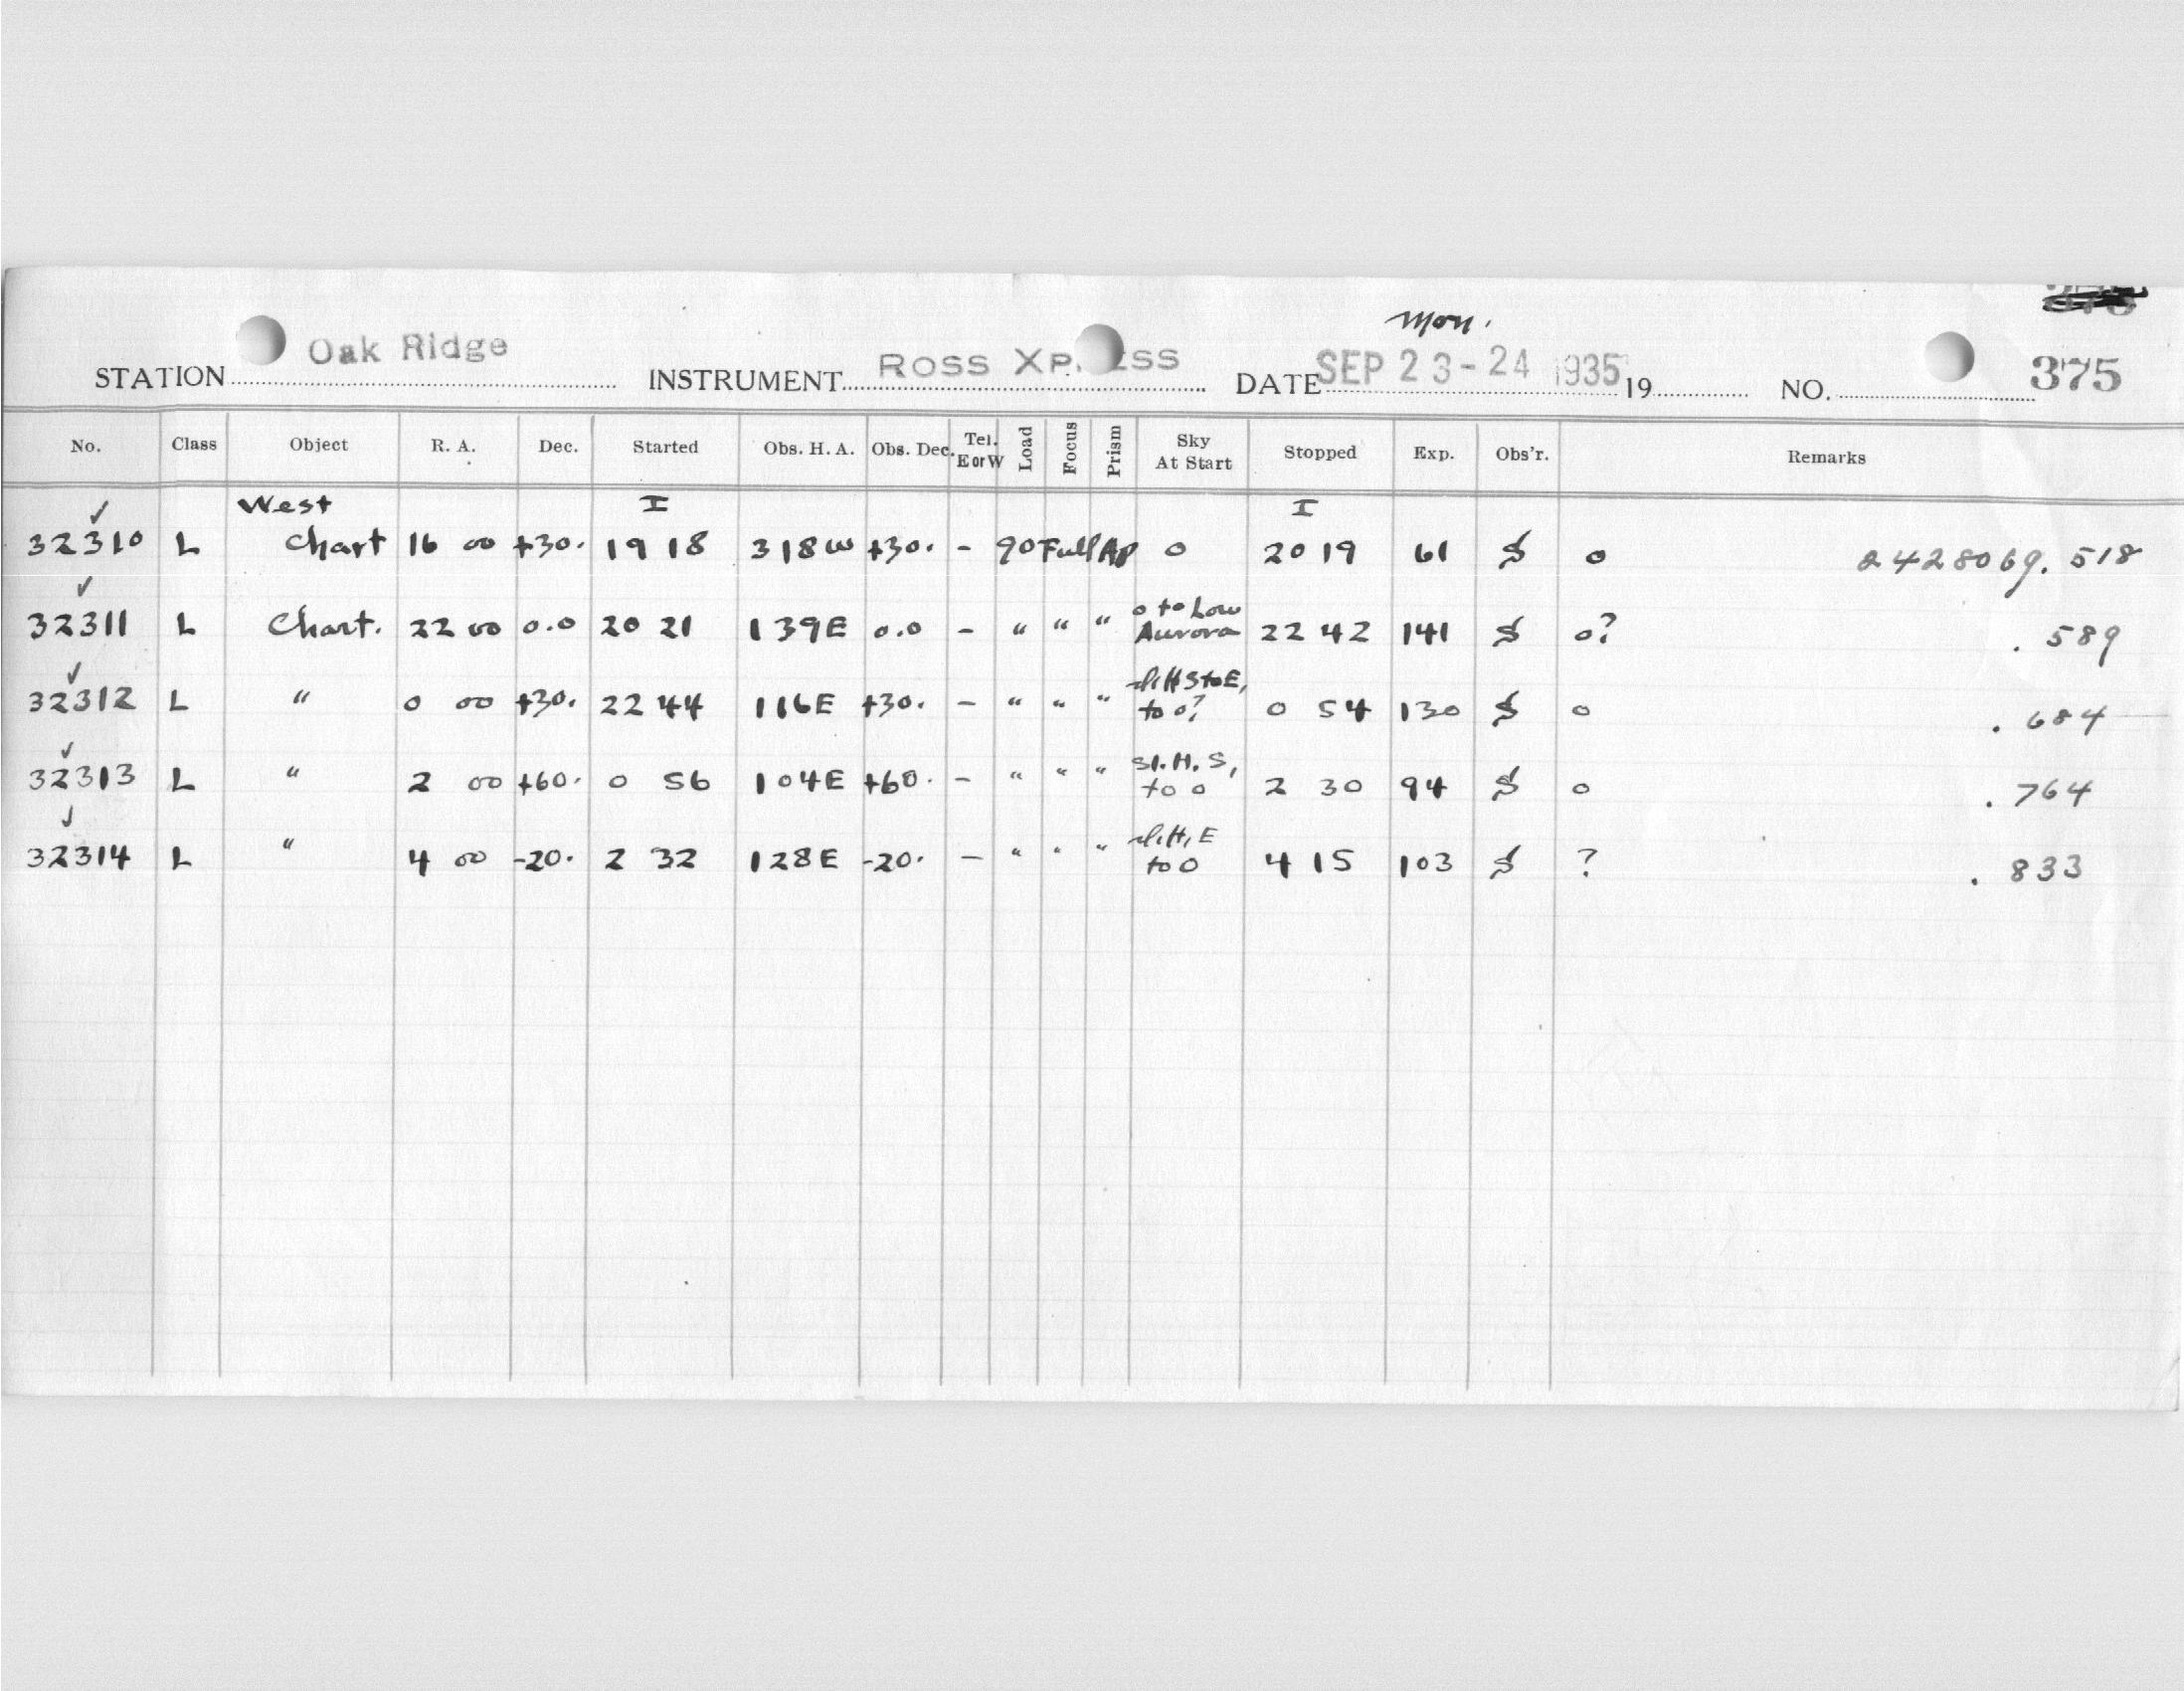 Mon.
STATION Oak Ridge INSTRUMENT ROSS XP ESS DATE SEP 23-24 1935 19 NO. 375
No. Class Object R. A. Dec. Started Obs. H. A. Obs. Dec. Tel. E or W Load Focus Prism Sky At Start Stopped Exp. Obs'r. Remarks
West I I
32310 L Chart 16 00 +30. 19 18 318W +30. - 90 Full Ap 0 20 19 61 0 2428069.518
32311 L Chart. 22 00 0.0 20 21 139E 0.0 - " " " 0 to Low Aurora 22 42 141 0? .589
32312 L " 0 00 +30. 22 44 116E +30. - " " " to 0? 0 54 130 0 .684
32313 L " 2 00 +60. 0 56 104E +60. - " " " Sl. H. S, to 0 2 30 94 0 .764
32314 L " 4 00 -20. 2 32 128E -20. - " " " E to 0 4 15 103 ? .833